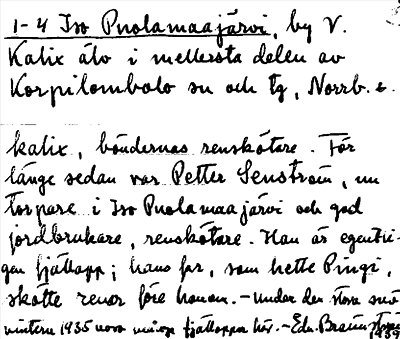 1-4 Iso Puolamaajärvi, by V.
Kalix älv i mellersta delen av
Korpilombolo sn och tg, Norrb. l.
kalix, böndernas renskötare. För
länge sedan var Petter Senström, nu
torpare i Iso Puolamaajärvi och god
jordbrukare, renskötare. Han är egentli-
gen fjällapp; hans far, som hette Pingi,
skötte renar före honom. - Under den stora snö
vintern 1935 voro många fjällappar här. - Edv. Brännström
1939